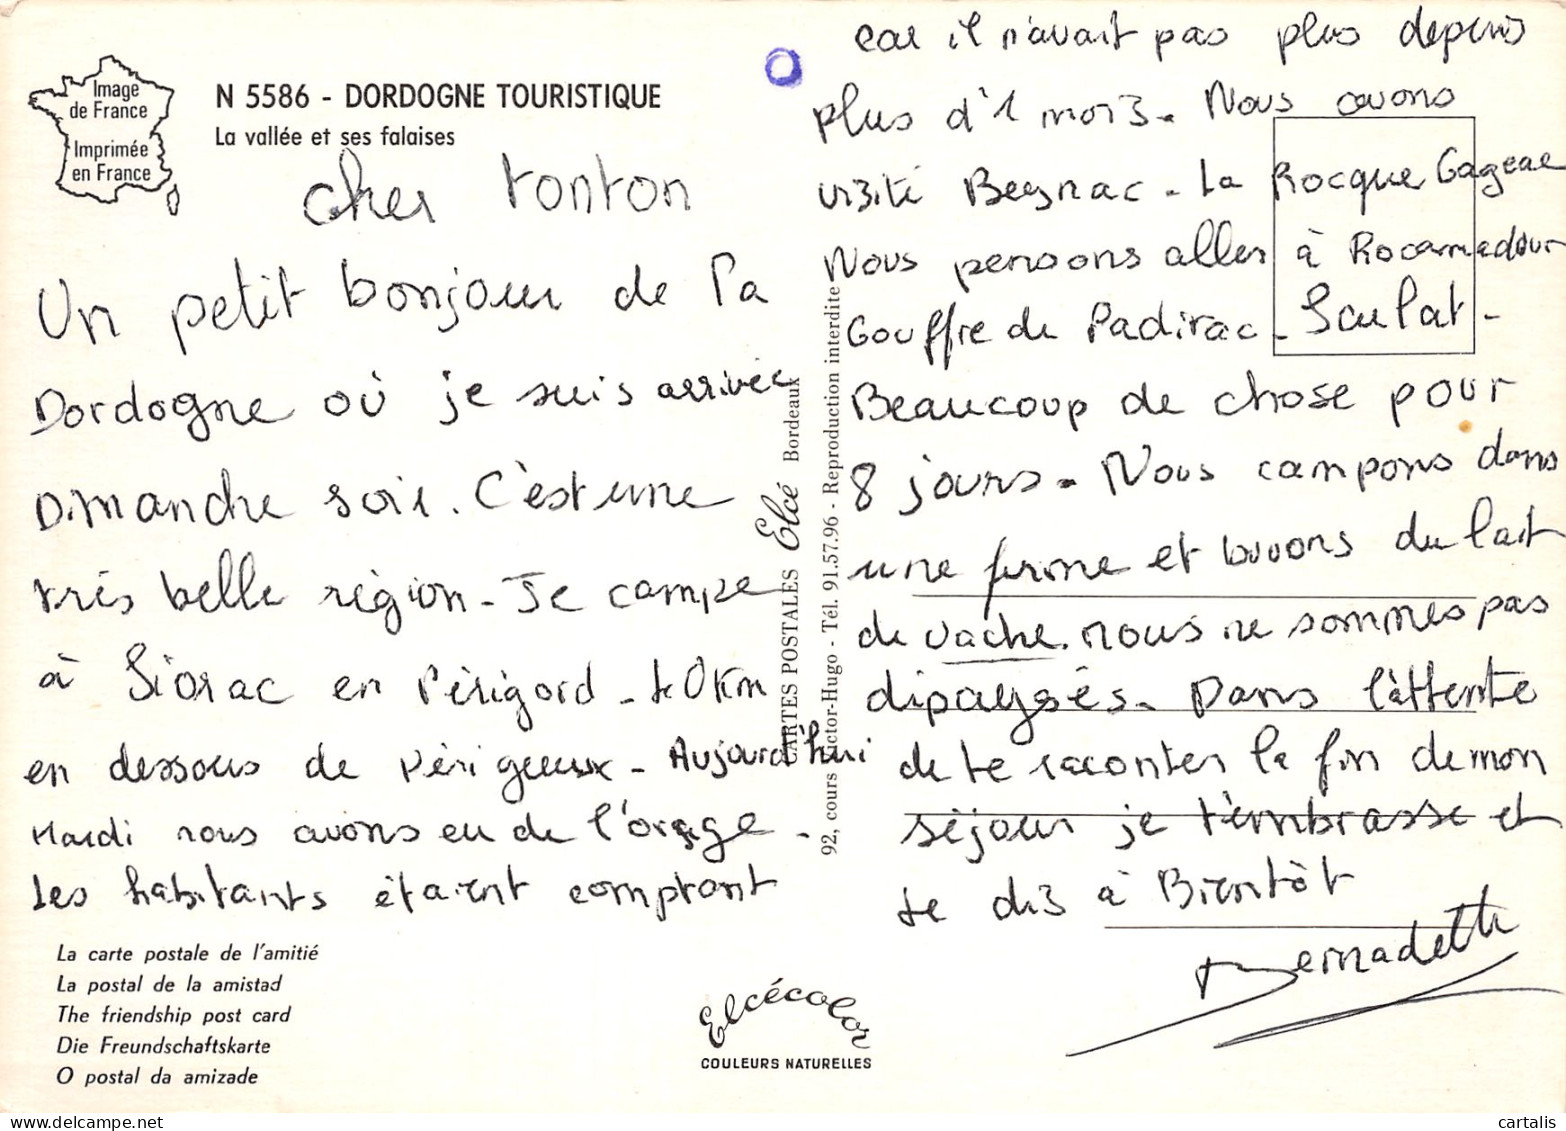 Image
de France
Imprimée
en France
N 5586 - DORDOGNE TOURISTIQUE
La vallée et ses falaises
cher tonton
Un petit bonjour de la
Dordogne où je suis arrivée
Dimanche soir. C'est une
très belle région - Je campe
à Siorac en Périgord - 40km
en dessous de Périgueux - Aujourd'hui
Mardi nous avons eu de l'orage -
Les habitants étaient comptant
La carte postale de l'amitié
La postal de la amistad
The friendship post card
Die Freundschaftskarte
O postal da amizade
CARTES POSTALES Elcé Bordeaux
92, cours Victor-Hugo - Tél. 91.57.96 - Reproduction interdite
Elcécolor
COULEURS NATURELLES
car il n'avait pas plus depuis
plus d'1 mois - Nous avons
visité Beynac - La Rocque Gageac
Nous pensons aller à Rocamadour
Gouffre de Padirac - Sarlat -
Beaucoup de chose pour
8 jours - Nous campons dans
une ferme et buvons du lait
de vache. nous ne sommes pas
dipaysés - Dans l'attente
de te raconter la fin de mon
séjour je t'embrasse et
te dis à Bientôt
Bernadette
cartalis